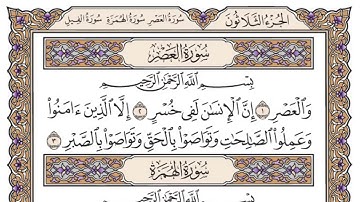 الجزء الثلاثون سورة العصر سورة الهمزة سورة الفيل
سورة العصر
بسم الله الرحمن الرحيم
وَٱلۡعَصۡرِ ١ إِنَّ ٱلۡإِنسَٰنَ لَفِي خُسۡرٍ ٢ إِلَّا ٱلَّذِينَ ءَامَنُواْ
وَعَمِلُواْ ٱلصَّٰلِحَٰتِ وَتَوَاصَوۡاْ بِٱلۡحَقِّ وَتَوَاصَوۡاْ بِٱلصَّبۡرِ ٣
سورة الهمزة
بسم الله الرحمن الرحيم